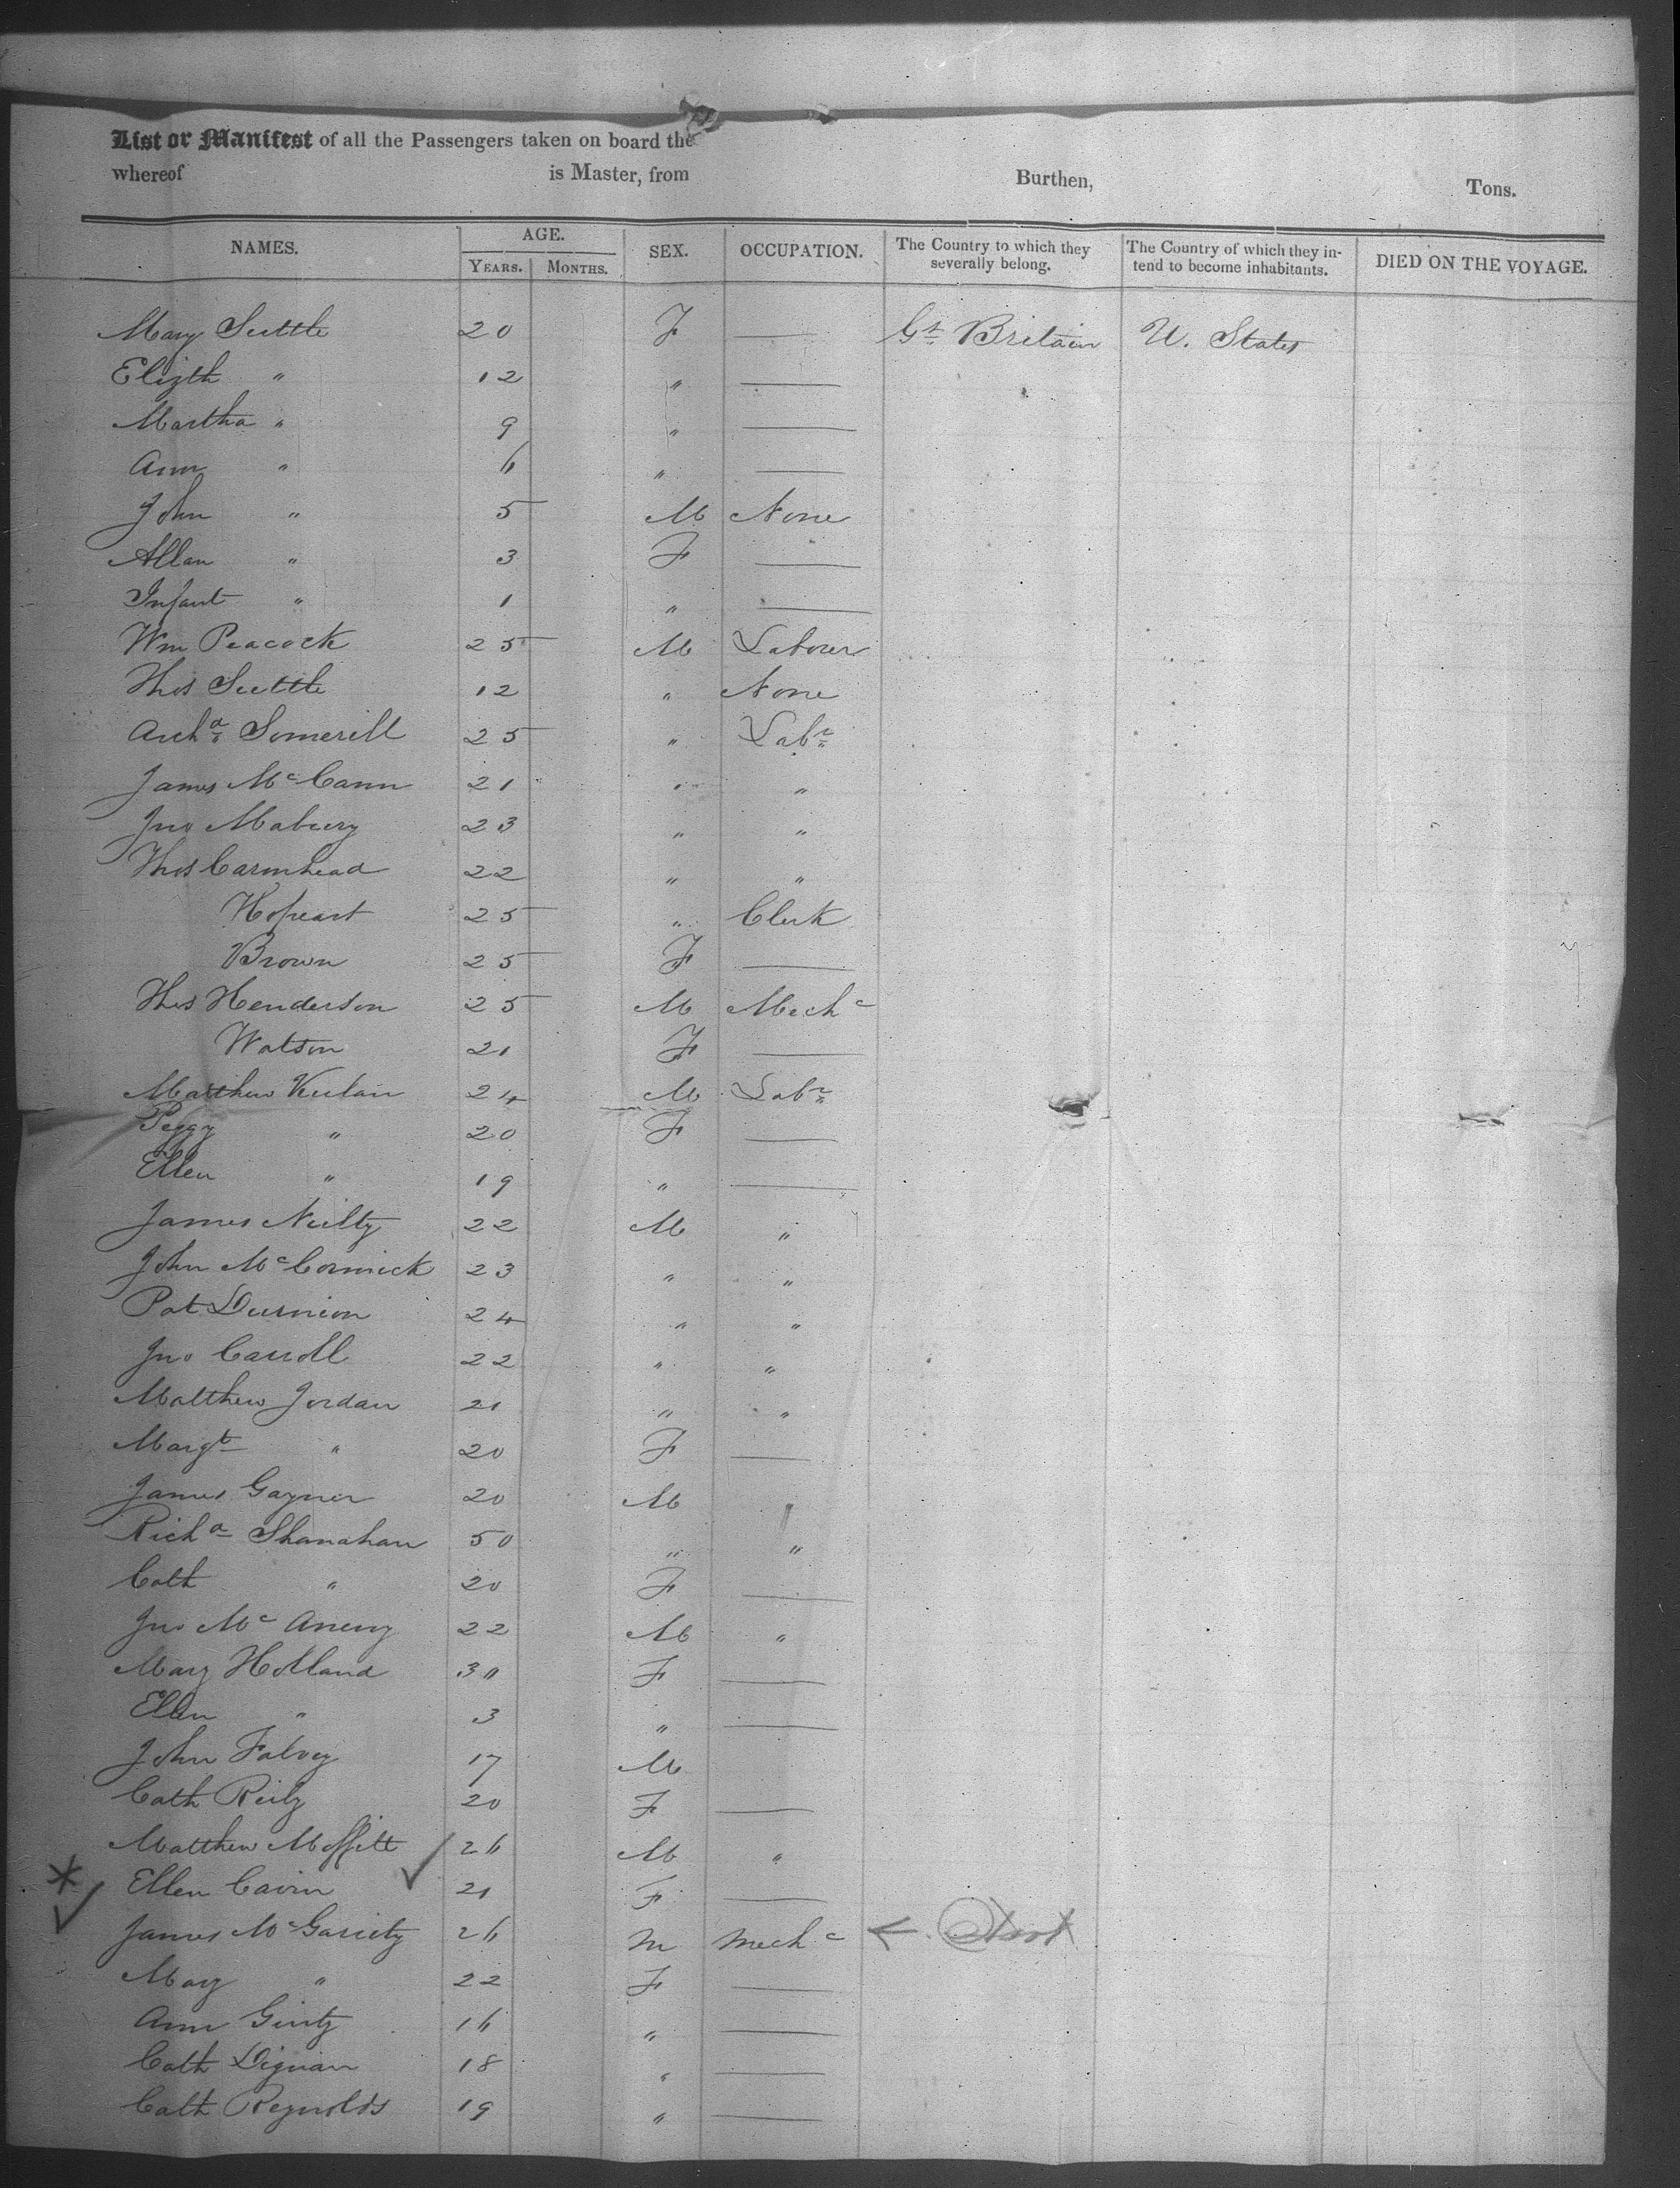 List or Manifest of all the Passengers taken on board the
whereof is Master, from Burthen, Tons.
NAMES. AGE. YEARS. MONTHS. SEX. OCCUPATION. The Country to which they severally belong. The Country of which they intend to become inhabitants. DIED ON THE VOYAGE.
Mary Suttle 20 F — Gt Britain U. States
Elizth " 12 " —
Martha " 9 " —
Ann " 6 " —
John " 5 M None
Allan " 3 F —
Infant " 1 " —
Wm Peacock 25 M Labourer
Thos Suttle 12 " None
Archd Somerill 25 " Labr
James McCann 21 " "
Jno Mabury 23 " "
Thos Carmhead 22 " "
25 " Clerk
Brown 25 F —
Thos Henderson 25 M Mechc
Watson 21 F —
Matthew 24 M Labr
Peggy " 20 F —
Ellen " 19 " —
James Neilty 22 M "
John McCormick 23 " "
Pat Durnion 24 " "
Jno Carroll 22 " "
Matthew Jordan 21 " "
Margt " 20 F —
James Gaynor 20 M "
Richd Shanahan 50 " "
Cath " 20 F —
Jno McAneny 22 M "
Mary Holland 30 F —
Ellen " 3 " —
John Falvey 17 M
Cath Reily 20 F —
Matthew Moffitt ✓ 26 M "
* Ellen Cavin 21 F —
✓ James McGarity 26 M Mechc ←
Mary " 22 F —
Ann Ginty 16 " —
Cath Dignan 18 " —
Cath Reynolds 19 " —